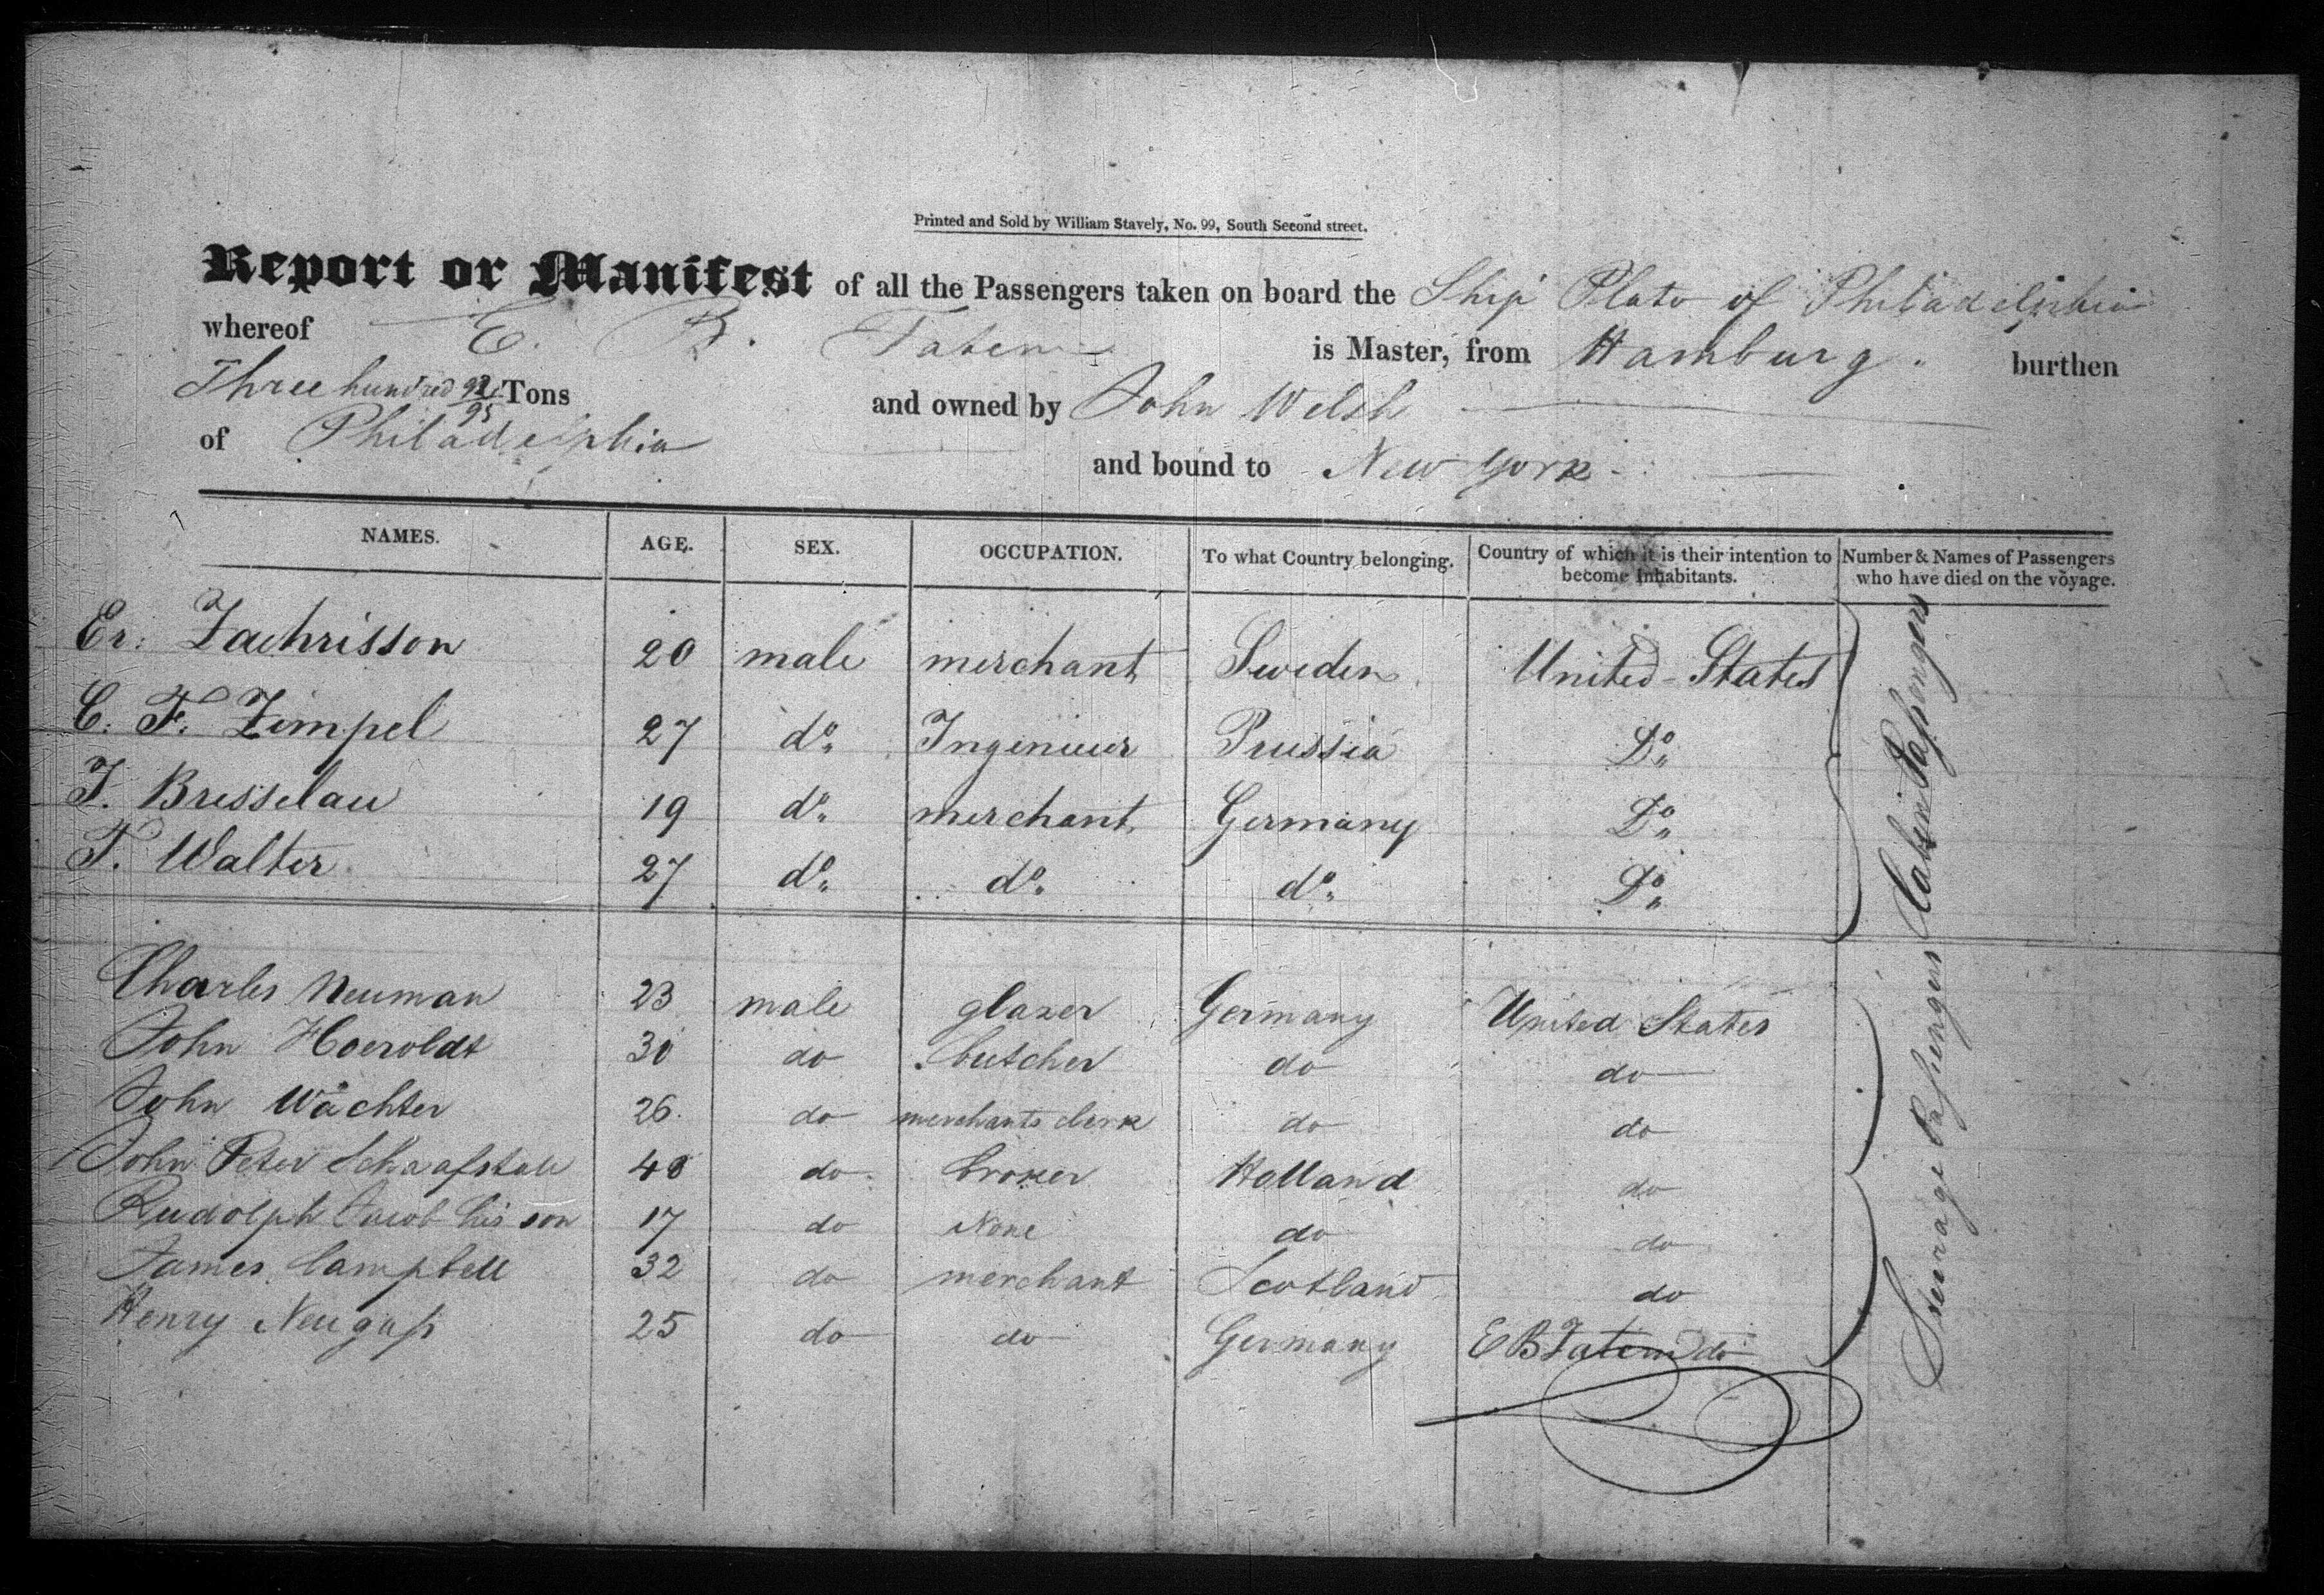 Printed and Sold by William Stavely, No. 99, South Second street.
Report or Manifest of all the Passengers taken on board the Ship Plato of Philadelphia
whereof E. B. Tatem is Master, from Hamburg. burthen
Three hundred Tons and owned by John Welsh
of Philadelphia and bound to New York
NAMES. AGE. SEX. OCCUPATION. To what Country belonging. Country of which it is their intention to become Inhabitants. Number & Names of Passengers who have died on the voyage.
Er: Zachrisson 20 male merchant Sweden United States
C. F. Zimpel 27 do. Ingenieur Prussia Do.
J. Bresselau 19 do. merchant Germany Do.
F. Walter 27 do. do. do. Do.
Cabin Passengers
Charles Neuman 23 male glaser Germany United States
John Hoeroldt 30 do butcher do do
John Wächter 26 do merchants clerk do do
John Peter Schaafstale 48 do broker Holland do
Rudolph Jacob his son 17 do None do do
James Campbell 32 do merchant Scotland do
Henry Neugass 25 do do Germany do
E B Tatem
Steerage Passengers